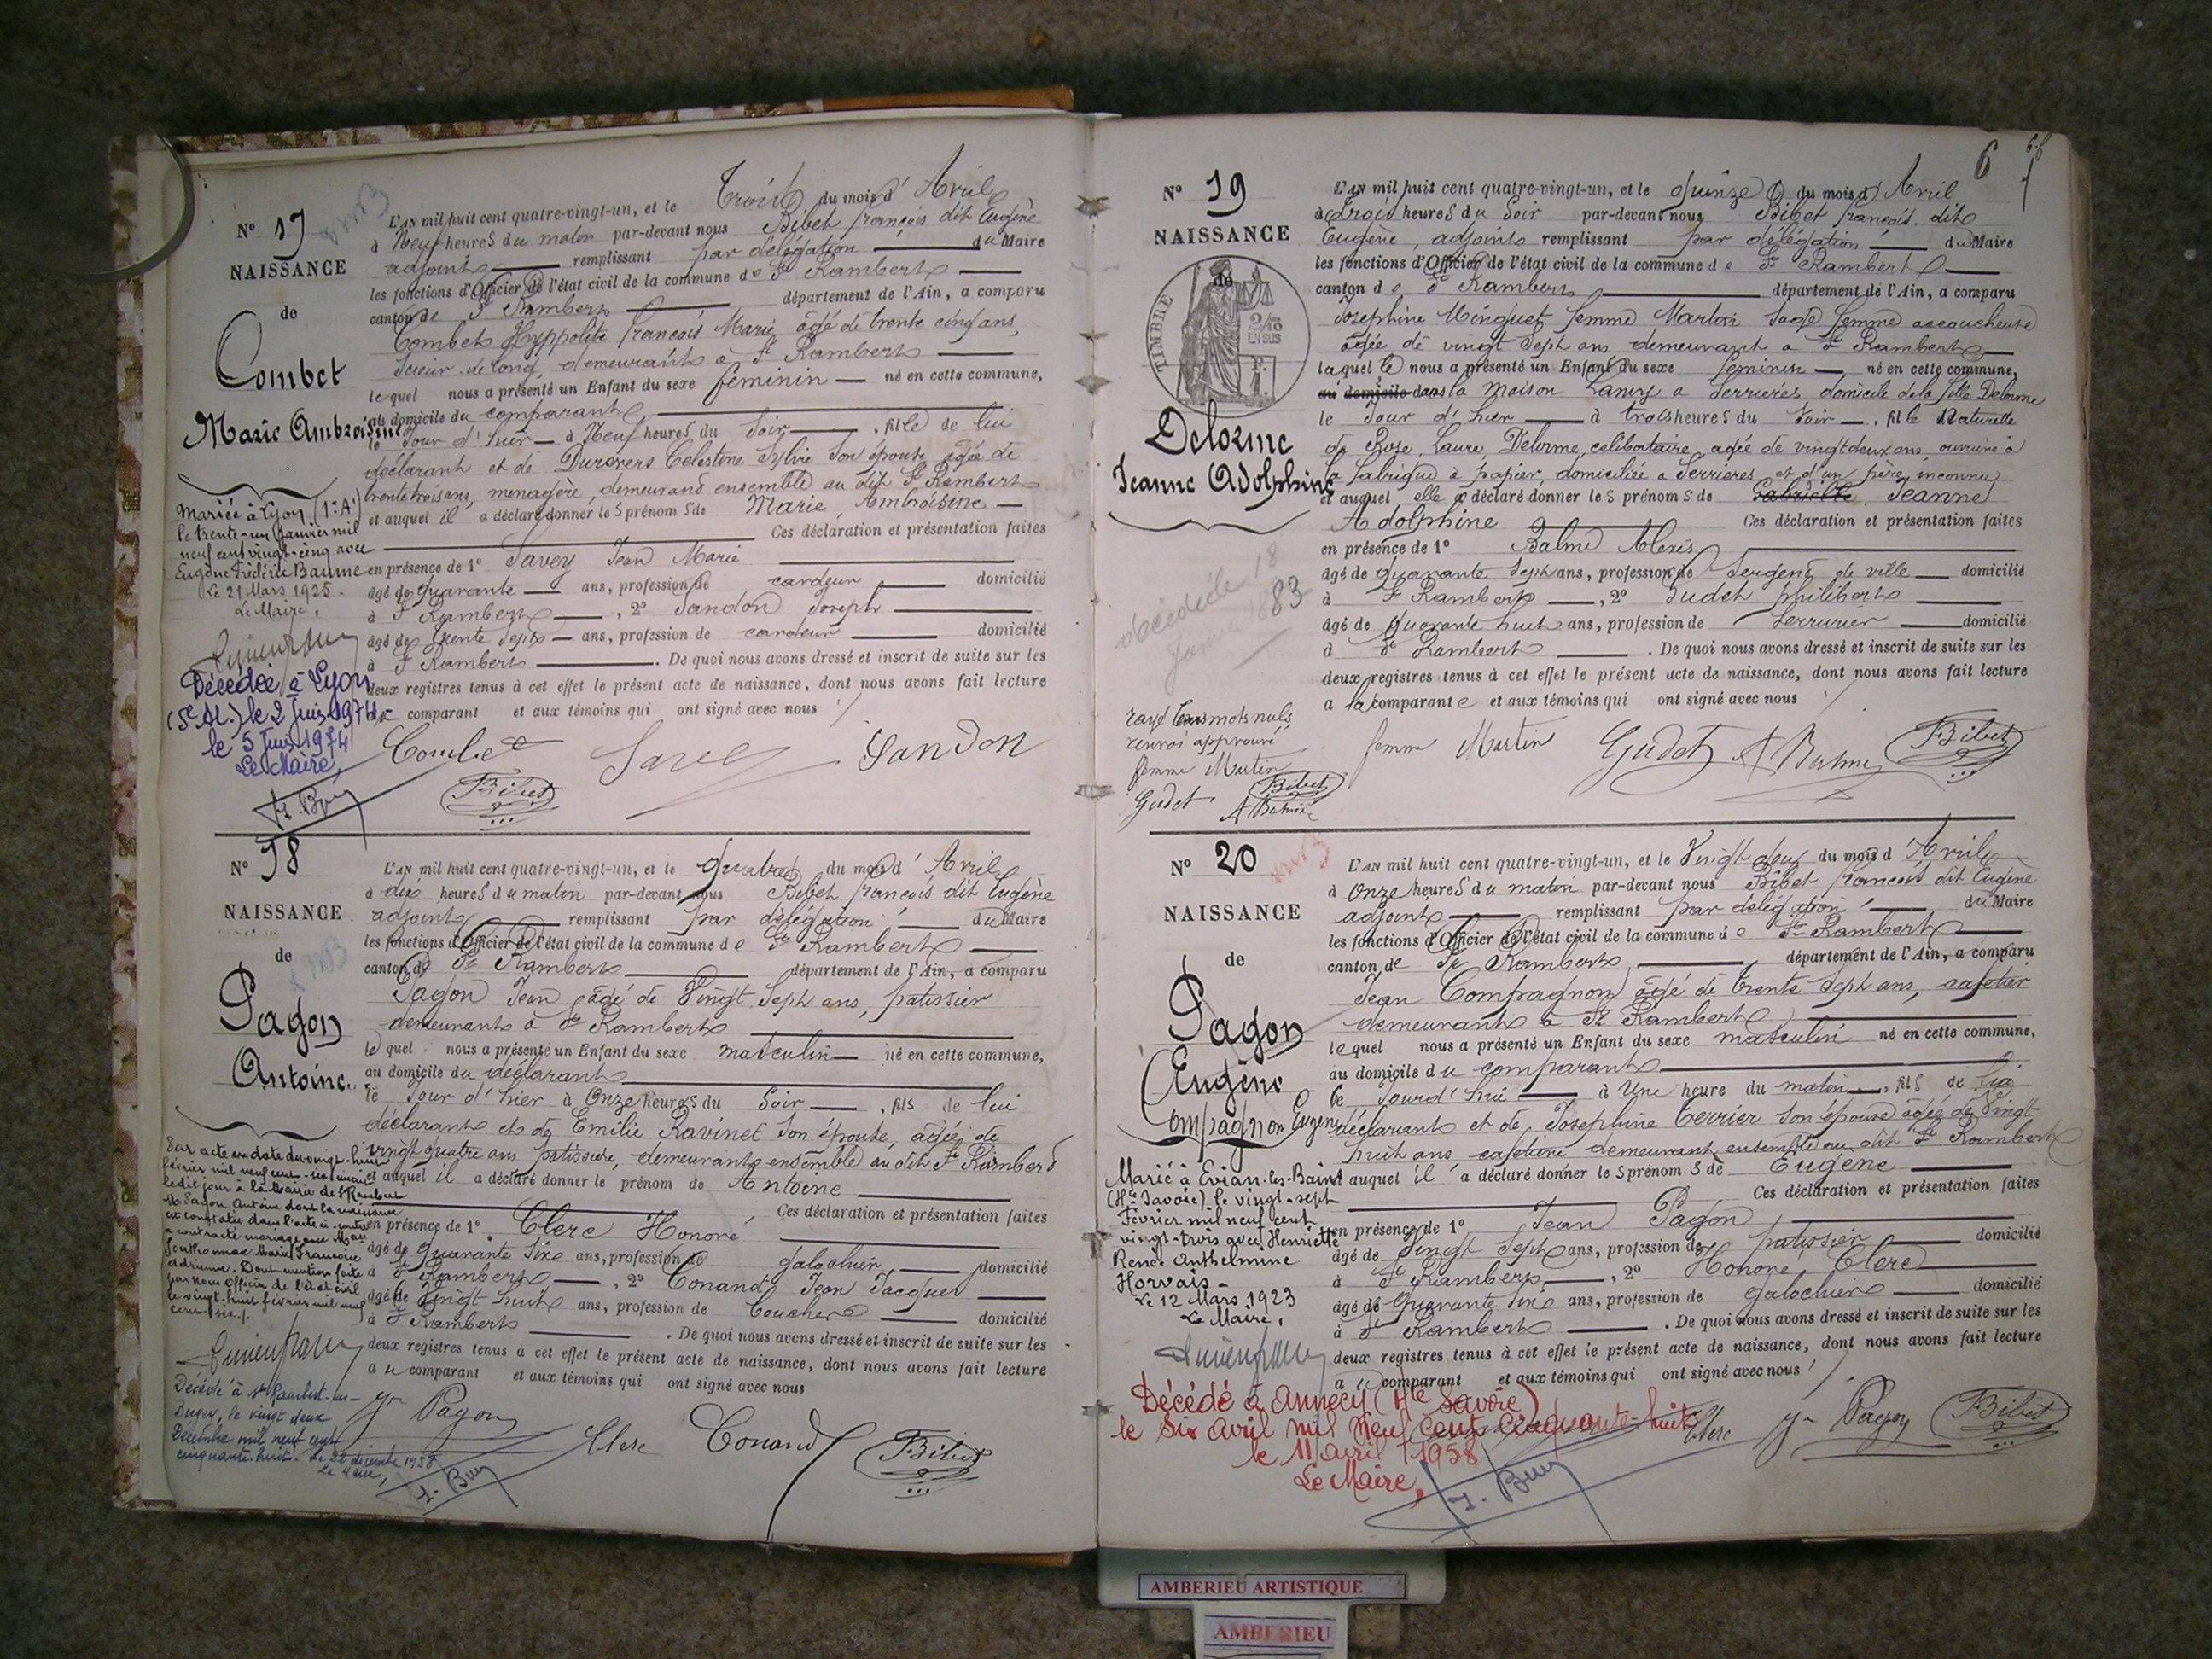 N° 17
NAISSANCE
de
Combet
Marie Ambroisine
Mariée à Lyon (1er Ar)
le trente-un Janvier mil
neuf cent vingt-cinq avec
Eugène Frédéric Baume
Le 21 Mars 1925.
Le Maire,
Décédée à Lyon
(5e Ar.) le 2 Juin 1974
le 5 Juin 1974
Le Maire,
L'AN mil huit cent quatre-vingt-un, et le Trois du mois d'Avril
à Neuf heures du matin par-devant nous Bibet françois dit Eugène
adjoint remplissant par délégation du Maire
les fonctions d'Officier de l'état civil de la commune de St Rambert
canton de St Rambert département de l'Ain, a comparu
Combet Hyppolite François Marie, âgé de trente cinq ans,
scieur de long, demeurant à St Rambert
lequel nous a présenté un Enfant du sexe féminin né en cette commune,
au domicile du comparant
le Jour d'hier à Neuf heures du Soir, fille de lui
déclarant et de Celestine Sylvie son épouse, âgée de
trente trois ans, menagère, demeurant ensemble au dit St Rambert
et auquel il a déclaré donner les prénoms de Marie, Ambroisine
Ces déclaration et présentation faites
en présence de 1° Savey Jean Marie
âgé de quarante ans, profession de cardeur domicilié
à St Rambert, 2° Sandon Joseph
âgé de trente sept ans, profession de cardeur domicilié
à St Rambert. De quoi nous avons dressé et inscrit de suite sur les
deux registres tenus à cet effet le présent acte de naissance, dont nous avons fait lecture
au comparant et aux témoins qui ont signé avec nous
Combet Savey Sandon
Bibet
N° 18
NAISSANCE
de
Pagon
Antoine.
Par acte en date du vingt-huit
février mil neuf cent six
le dit jour à la Mairie de St Rambert
M. Pagon Antoine dont la naissance
est constatée dans l'acte ci-contre
a contracté mariage avec
Marie Françoise
Adrienne. Dont mention faite
par nous Officier de l'état civil
le vingt-huit février mil neuf
cent six.
Décédé à St Rambert-en-
Bugey, le vingt deux
Décembre mil neuf cent
cinquante huit. Le 22 décembre 1958
Le Maire,
L'AN mil huit cent quatre-vingt-un, et le Quatre du mois d'Avril
à dix heures du matin par-devant nous Bibet françois dit Eugène
adjoint remplissant par délégation du Maire
les fonctions d'Officier de l'état civil de la commune de St Rambert
canton de St Rambert département de l'Ain, a comparu
Pagon Jean, âgé de Vingt Sept ans, patissier
demeurant à St Rambert
lequel nous a présenté un Enfant du sexe masculin né en cette commune,
au domicile du déclarant
le Jour d'hier à Onze heures du Soir, fils de lui
déclarant et de Emilie Ravinet son épouse, âgée de
vingt quatre ans patissière, demeurant ensemble au dit St Rambert
et auquel il a déclaré donner le prénom de Antoine
Ces déclaration et présentation faites
en présence de 1° Clerc Honoré
âgé de quarante six ans, profession de galochier, domicilié
à St Rambert, 2° Conand Jean Jacques
âgé de Vingt huit ans, profession de boucher domicilié
à St Rambert. De quoi nous avons dressé et inscrit de suite sur les
deux registres tenus à cet effet le présent acte de naissance, dont nous avons fait lecture
au comparant et aux témoins qui ont signé avec nous
Jn Pagon Clerc Conand Bibet
6
N° 19
NAISSANCE
de
TIMBRE
2/10
EN SUS
Delorme
Jeanne Adolphine
décédée 18
1883
rayé trois mots nuls
renvoi approuvé
femme Martin
Gudet Bibet
A Balme
L'AN mil huit cent quatre-vingt-un, et le quinze du mois d'Avril
à trois heures du Soir par-devant nous Bibet françois dit
Eugène, adjoint remplissant par délégation du Maire
les fonctions d'Officier de l'état civil de la commune de St Rambert
canton de St Rambert département de l'Ain, a comparu
Josephine Minguet femme Martin Sage femme accoucheuse
âgée de vingt Sept ans demeurant à St Rambert
laquelle nous a présenté un Enfant du sexe féminin né en cette commune,
au domicile dans la Maison à Serrières, domicile de la fille Delorme
le Jour d'hier à trois heures du Soir, fille Naturelle
de Rose Laure Delorme, celibataire, agée de vingt deux ans, ouvrière à
la fabrique à papier, domiciliée à Serrières et d'un père inconnu
et auquel elle a déclaré donner les prénoms de Gabrielle Jeanne
Adolphine Ces déclaration et présentation faites
en présence de 1° Balme Alexis
âgé de quarante Sept ans, profession de Sergent de ville domicilié
à St Rambert, 2° Gudet philibert
âgé de quarante huit ans, profession de Serrurier domicilié
à St Rambert. De quoi nous avons dressé et inscrit de suite sur les
deux registres tenus à cet effet le présent acte de naissance, dont nous avons fait lecture
a la comparante et aux témoins qui ont signé avec nous
femme Martin Gudet A Balme Bibet
N° 20
NAISSANCE
de
Pagon
Eugène
Compagnon Eugène
Marié à Evian-les-Bains
(Hte Savoie) le vingt-sept
Février mil neuf cent
vingt-trois avec Henriette
Renée Anthelmine
Horvais
Le 12 Mars 1923
Le Maire,
L'AN mil huit cent quatre-vingt-un, et le Vingt deux du mois d'Avril
à Onze heures du matin par-devant nous Bibet françois dit Eugène
adjoint remplissant par délégation du Maire
les fonctions d'Officier de l'état civil de la commune de St Rambert
canton de St Rambert, département de l'Ain, a comparu
Jean Compagnon âgé de trente Sept ans, cafetier
demeurant à St Rambert
lequel nous a présenté un Enfant du sexe masculin né en cette commune,
au domicile du comparant
le Jourd'hui à Une heure du matin, fils de lui
déclarant et de Josephine Terrier son épouse âgée de Vingt
huit ans cafetière demeurant ensemble au dit St Rambert
et auquel il a déclaré donner les prénoms de Eugène
Ces déclaration et présentation faites
en présence de 1° Jean Pagon
âgé de Vingt Sept ans, profession de patissier domicilié
à St Rambert, 2° Honoré Clerc
âgé de Quarante Six ans, profession de galochier domicilié
à St Rambert. De quoi nous avons dressé et inscrit de suite sur les
deux registres tenus à cet effet le présent acte de naissance, dont nous avons fait lecture
au comparant et aux témoins qui ont signé avec nous
Décédé à Annecy (Hte Savoie)
le Six Avril mil neuf cent cinquante-huit
le 11 avril 1958
Le Maire,
Clerc Jn Pagon Bibet
AMBERIEU ARTISTIQUE
AMBERIEU